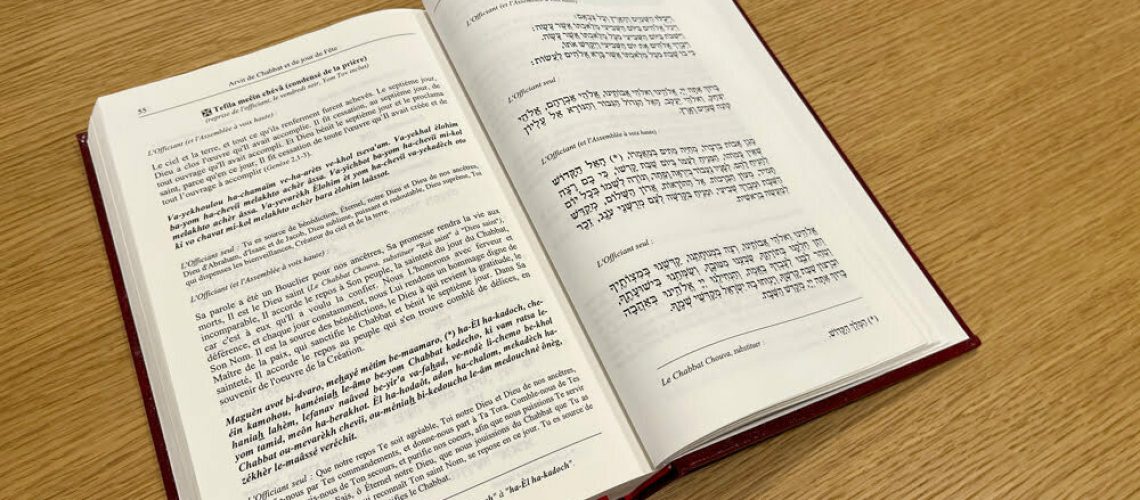 55
Arvit de Chabbat et du jour de Fête
Tefila meêin chévâ (condensé de la prière)
(reprise de l'officiant, le vendredi soir, Yom Tov inclus)
L'Officiant (et l'Assemblée à voix haute) :
Le ciel et la terre, et tout ce qu'ils renferment furent achevés. Le septième jour,
Dieu a clos l'œuvre qu'Il avait accomplie. Il fit cessation, au septième jour, de
tout ouvrage qu'Il avait accompli. Et Dieu bénit le septième jour et le proclama
saint, parce qu'en ce jour, Il fit cessation de toute l'œuvre qu'Il avait créée et de
tout l'ouvrage à accomplir (Genèse 2,1-3).
Va-yekhoulou ha-chamaïm ve-ha-arèts ve-khol tseva'am. Va-yekhal élohim
ba-yom ha-cheviï melakhto achèr âssa. Va-yichbot ba-yom ha-cheviï mi-kol
melakhto achèr âssa. Va-yevarèkh Élohim èt yom ha-cheviï va-yekadèch oto
ki vo chavat mi-kol melakhto achèr bara élohim laâssot.
L'Officiant seul : Tu es source de bénédiction, Éternel, notre Dieu et Dieu de nos ancêtres,
Dieu d'Abraham, d'Isaac et de Jacob, Dieu sublime, puissant et redoutable, Dieu suprême, Toi
qui dispenses les bienveillances, Créateur du ciel et de la terre.
L'Officiant (et l'Assemblée à voix haute) :
Sa parole a été un Bouclier pour nos ancêtres, Sa promesse rendra la vie aux
morts, Il est le Dieu saint (Le Chabbat Chouva, substituer "Roi saint" à "Dieu saint"),
incomparable, Il accorde le repos à Son peuple, la sainteté du jour du Chabbat,
car c'est à eux qu'Il a voulu la confier. Nous L'honorons avec ferveur et
déférence, et chaque jour constamment, nous Lui rendons un hommage digne de
Son Nom. Il est la source des bénédictions, le Dieu à qui revient la gratitude, le
Maître de la paix, qui sanctifie le Chabbat et bénit le septième jour. Dans Sa
sainteté, Il accorde le repos au peuple qui s'en trouve comblé de délices, en
souvenir de l'oeuvre de la Création.
Maguèn avot bi-dvaro, meḥayé métim be-maamaro, (*) ha-Èl ha-kadoch, che-
éin kamohou, haméniaḥ le-âmo be-yom Chabbat kodecho, ki vam ratsa le-
haniaḥ lahèm, lefanav naâvod be-yir'a va-faḥad, ve-nodé li-chemo be-khol
yom tamid, meôn ha-berakhot. Èl ha-hodaôt, adon ha-chalom, mekadèch ha-
Chabbat ou-mevarèkh cheviï, ou-méniaḥ bi-kedoucha le-âm medouchné ônèg,
zékhèr le-maâssé veréchit.
L'Officiant seul : Que notre repos Te soit agréable, Toi notre Dieu et Dieu de nos ancêtres,
par Tes commandements, et donne-nous part à Ta Tora. Comble-nous de Tes
de Ton secours, et purifie nos coeurs, afin que nous puissions Te servir
Fais, ô Éternel notre Dieu, que nous jouissions du Chabbat que Tu as
reconnaît Ton saint Nom, se repose en ce jour. Tu es source de
le Chabbat.
à "ha-Èl ha-kadoch"
L'Officiant (et l'Assemblée à voix haute) :
ויכלו השמים והארץ וכל צבאם:
ויכל אלהים ביום השביעי מלאכתו אשר עשה.
וישבת ביום השביעי מכל מלאכתו אשר עשה:
ויברך אלהים את יום השביעי ויקדש אותו,
כי בו שבת מכל מלאכתו אשר ברא אלהים לעשות:
L'Officiant seul :
ברוך אתה יי, אלהינו ואלהי אבותינו, אלהי אברהם, אלהי
יצחק, ואלהי יעקב, האל הגדול הגבור והנורא אל עליון
קונה שמים וארץ.
L'Officiant (et l'Assemblée à voix haute) :
מגן אבות בדברו, מחיה מתים במאמרו, (*) האל הקדוש
שאין כמוהו, המניח לעמו ביום שבת קדשו, כי בם רצה
להניח להם, לפניו נעבוד ביראה ופחד, ונודה לשמו בכל יום
תמיד, מעון הברכות. אל ההודאות, אדון השלום, מקדש
השבת ומברך שביעי, ומניח בקדושה לעם מדשני ענג, זכר
למעשה בראשית.
L'Officiant seul :
אלהינו ואלהי אבותינו, רצה במנוחתנו, קדשנו במצותיך
ותן חלקנו בתורתך, שבענו מטובך, ושמחנו בישועתך,
וטהר לבנו לעבדך באמת, והנחילנו יי אלהינו באהבה
וברצון שבת קדשך, וינוחו בה ישראל מקדשי שמך.
ברוך אתה יי, מקדש השבת.
Le Chabbat Chouva, substituer :
(*) המלך הקדוש.